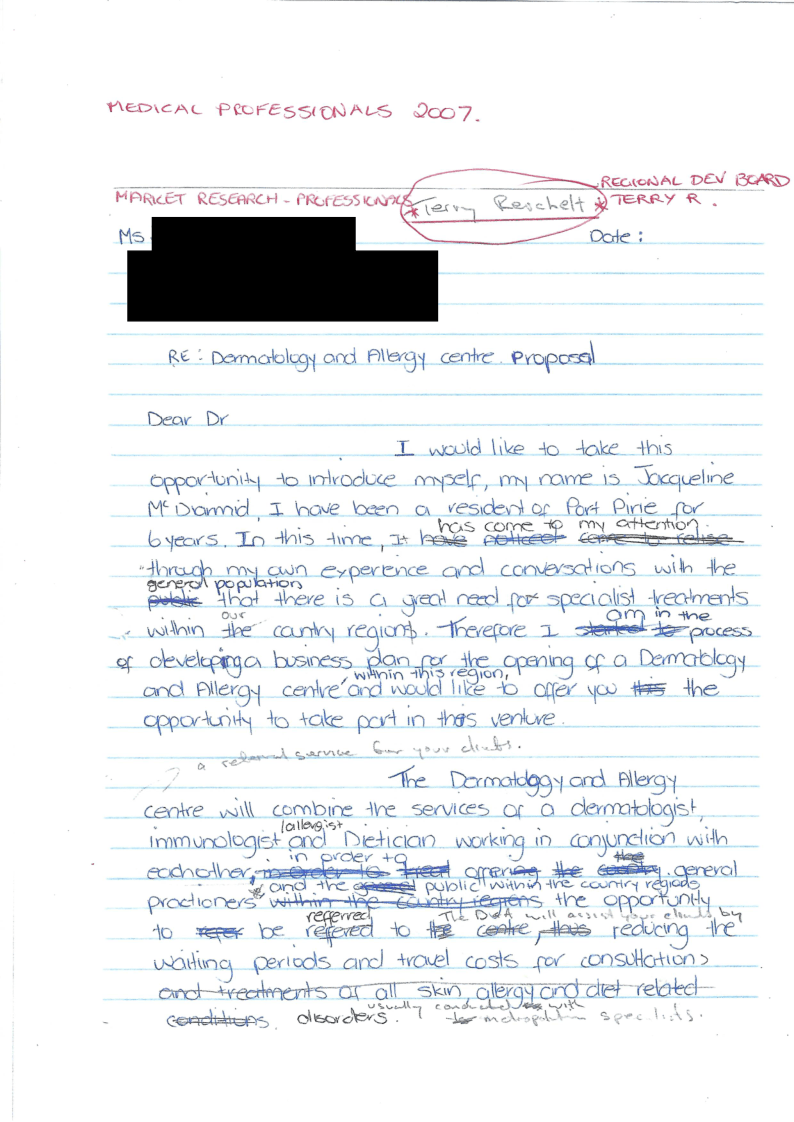 MEDICAL PROFESSIONALS 2007.
REGIONAL DEV BOARD
MARKET RESEARCH - PROFESSIONALS * Terry Reschelt * TERRY R.
Ms Date:
RE: Dermatology and Allergy centre. Proposal
Dear Dr
I would like to take this
opportunity to introduce myself, my name is Jacqueline
McDiarmid, I have been a resident of Port Pirie for
has come to my attention.
6 years. In this time, It have noticed come to relise
through my own experience and conversations with the
general population
public that there is a great need for specialist treatments
our am in the
within the country regions. Therefore I started to process
of developing a business plan for the opening of a Dermatology
within this region,
and Allergy centre and would like to offer you this the
opportunity to take part in this venture.
a referral service for your clients.
The Dermatology and Allergy
centre will combine the services of a dermatologist,
/allergist
immunologist and Dietician working in conjunction with
in order to the
eachother, in order to treat offering the country general
and the general public within the country regions
practioners within the country regions the opportunity
referred The D&A will assist your clients by
to refer be refered to the centre, thus reducing the
waiting periods and travel costs for consultations
and treatments of all skin allergy and diet related
usually conducted with
conditions. disorders. to metropolitan specilists.